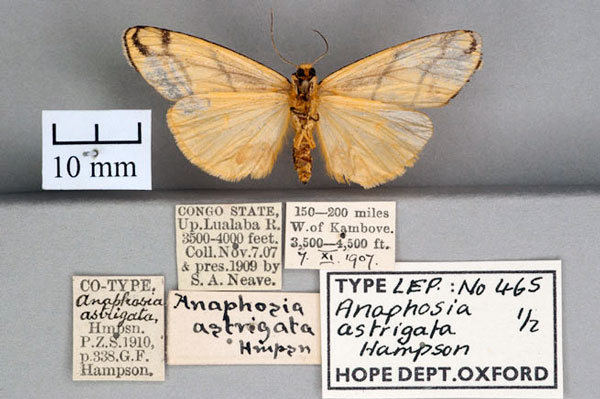 10 mm
CONGO STATE,
Up. Lualaba R.
3500-4000 feet.
Coll. Nov. 7.07
& pres. 1909 by
S. A. Neave.
150—200 miles
W. of Kambove.
3,500—4,500 ft.
7. XI. 1907.
CO-TYPE.
Anaphosia
astrigata,
Hmpsn.
P.Z.S. 1910,
p.338. G.F.
Hampson.
Anaphosia
astrigata
Hmpsn
TYPE LEP.: No 465
Anaphosia
astrigata 1/2
Hampson
HOPE DEPT. OXFORD